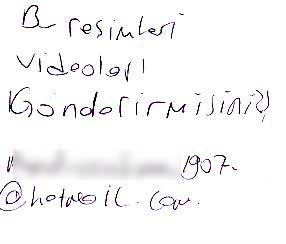 Bu resimleri
videoları
Gönderirmisiniz
1907.
@hotmail.com.